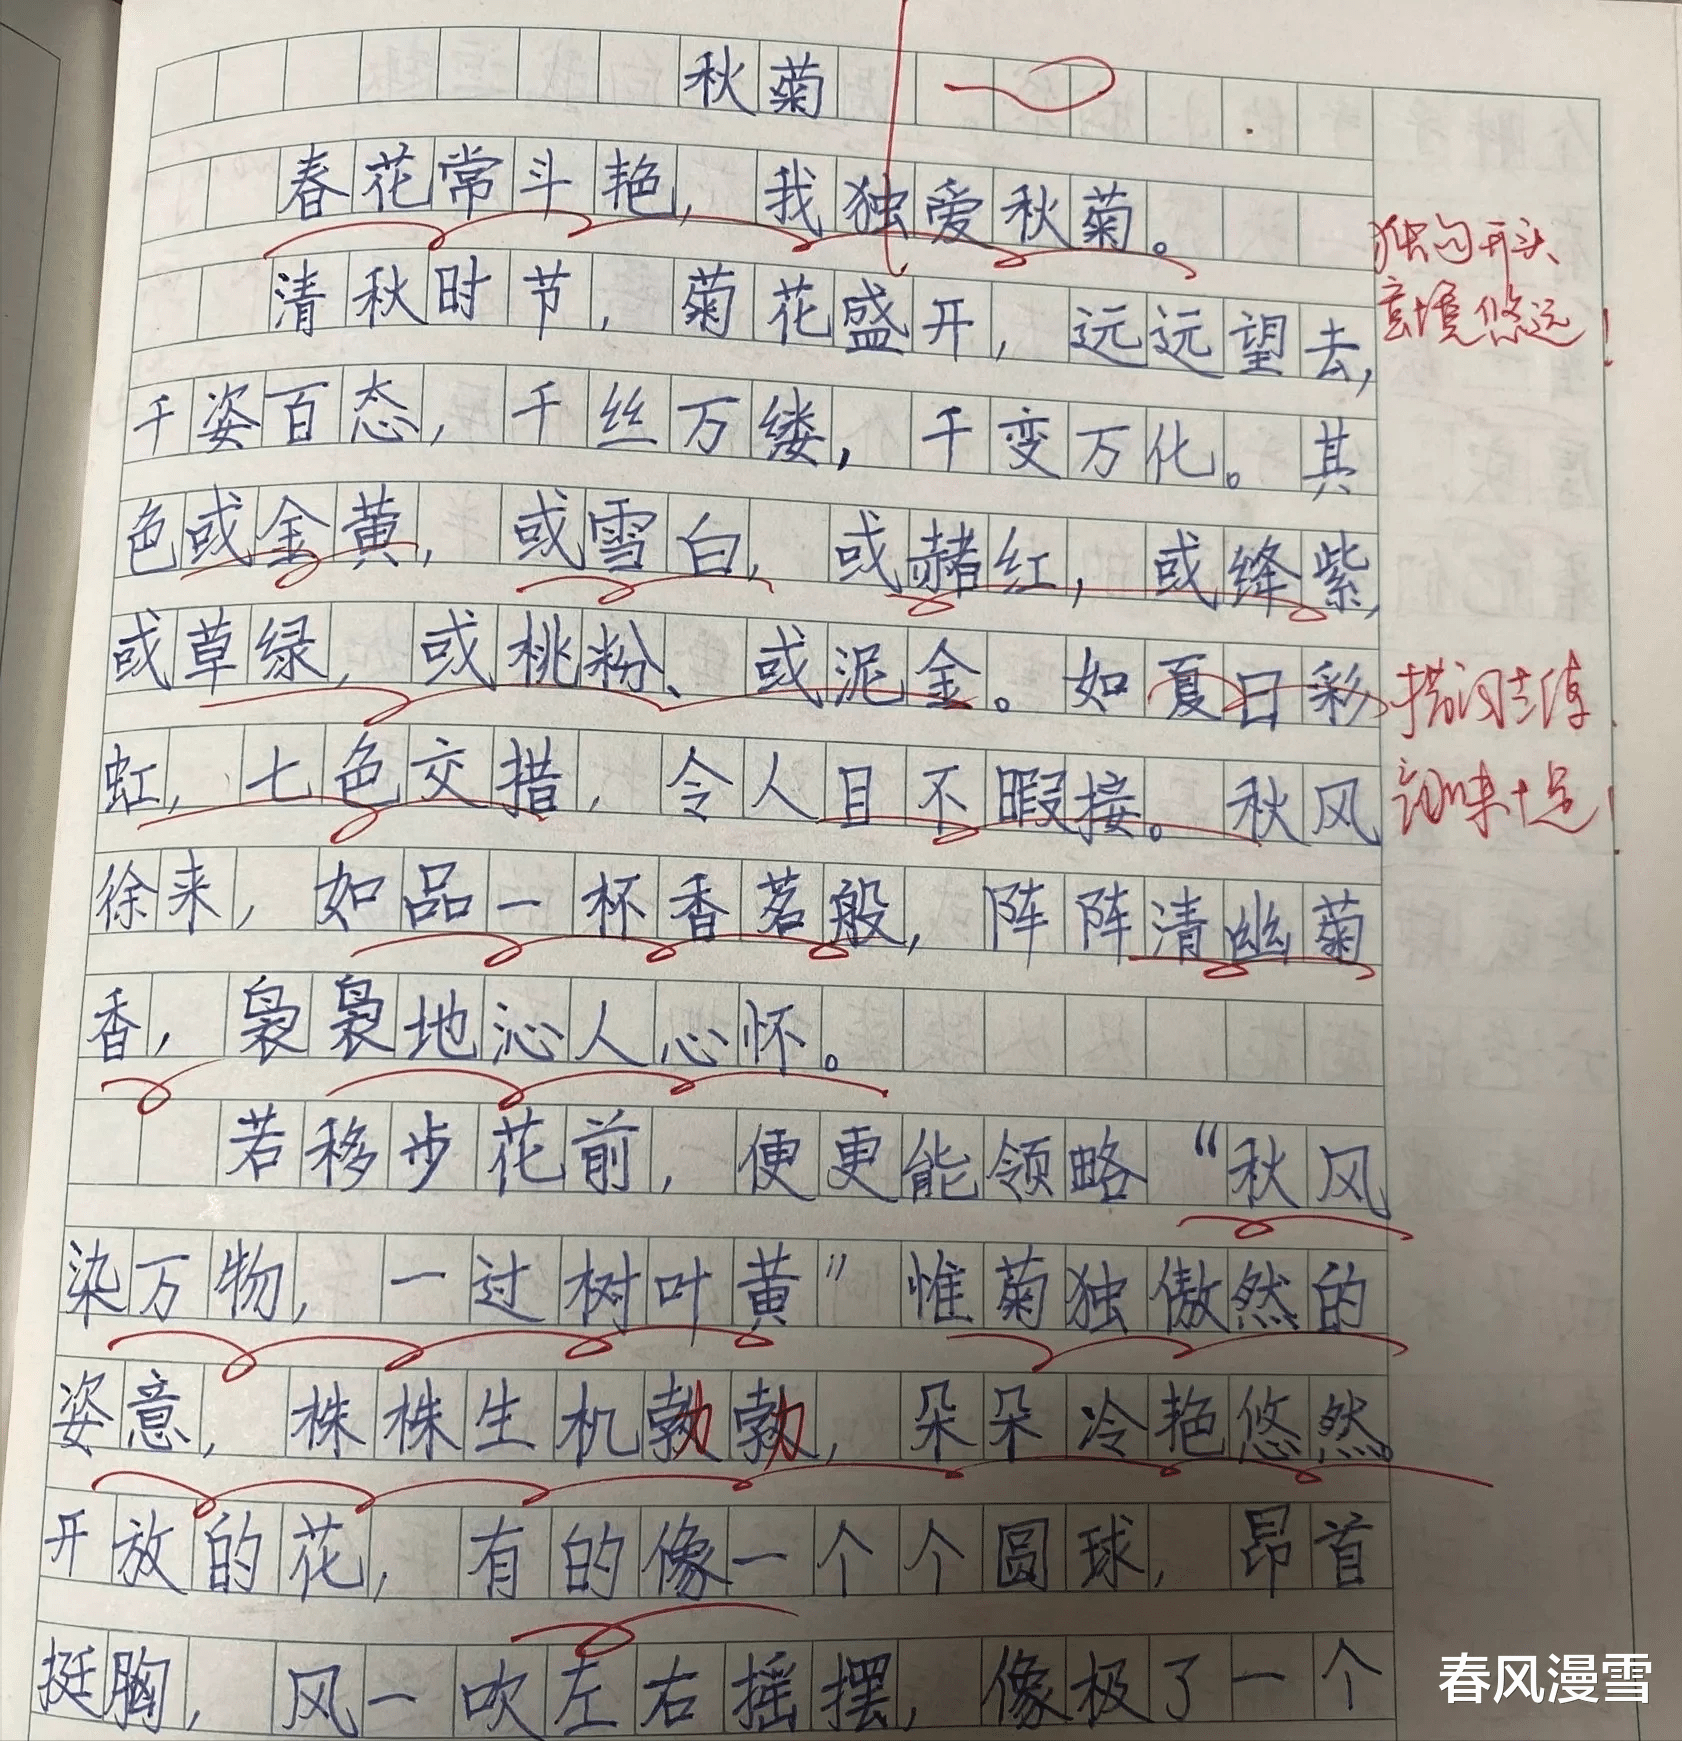 秋菊
春花常斗艳，我独爱秋菊。
独句开头
意境悠远！
清秋时节，菊花盛开，远远望去，
千姿百态，千丝万缕，千变万化。其
色或金黄，或雪白，或赭红，或绛紫，
或草绿，或桃粉、或泥金。如夏日彩
虹，七色交措，令人目不暇接。秋风
措词考究
韵味十足！
徐来，如品一杯香茗般，阵阵清幽菊
香，袅袅地沁人心怀。
若移步花前，便更能领略“秋风
染万物，一过树叶黄”惟菊独傲然的
姿意，株株生机勃勃，朵朵冷艳悠然。
开放的花，有的像一个个圆球，昂首
挺胸，风一吹左右摇摆，像极了一个
春风漫雪